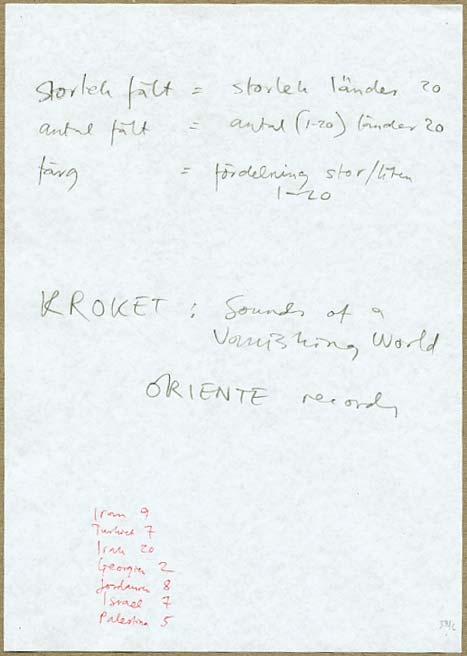 storlek fält = storlek länder 20
antal fält = antal (1-20) länder 20
färg = fördelning stor/liten
1-20
KROKET : Sounds of a
Vanishing World
ORIENTE records
Iran 9
Turkiet 7
Irak 20
Georgien 2
Jordanien 8
Israel 7
Palestina 5